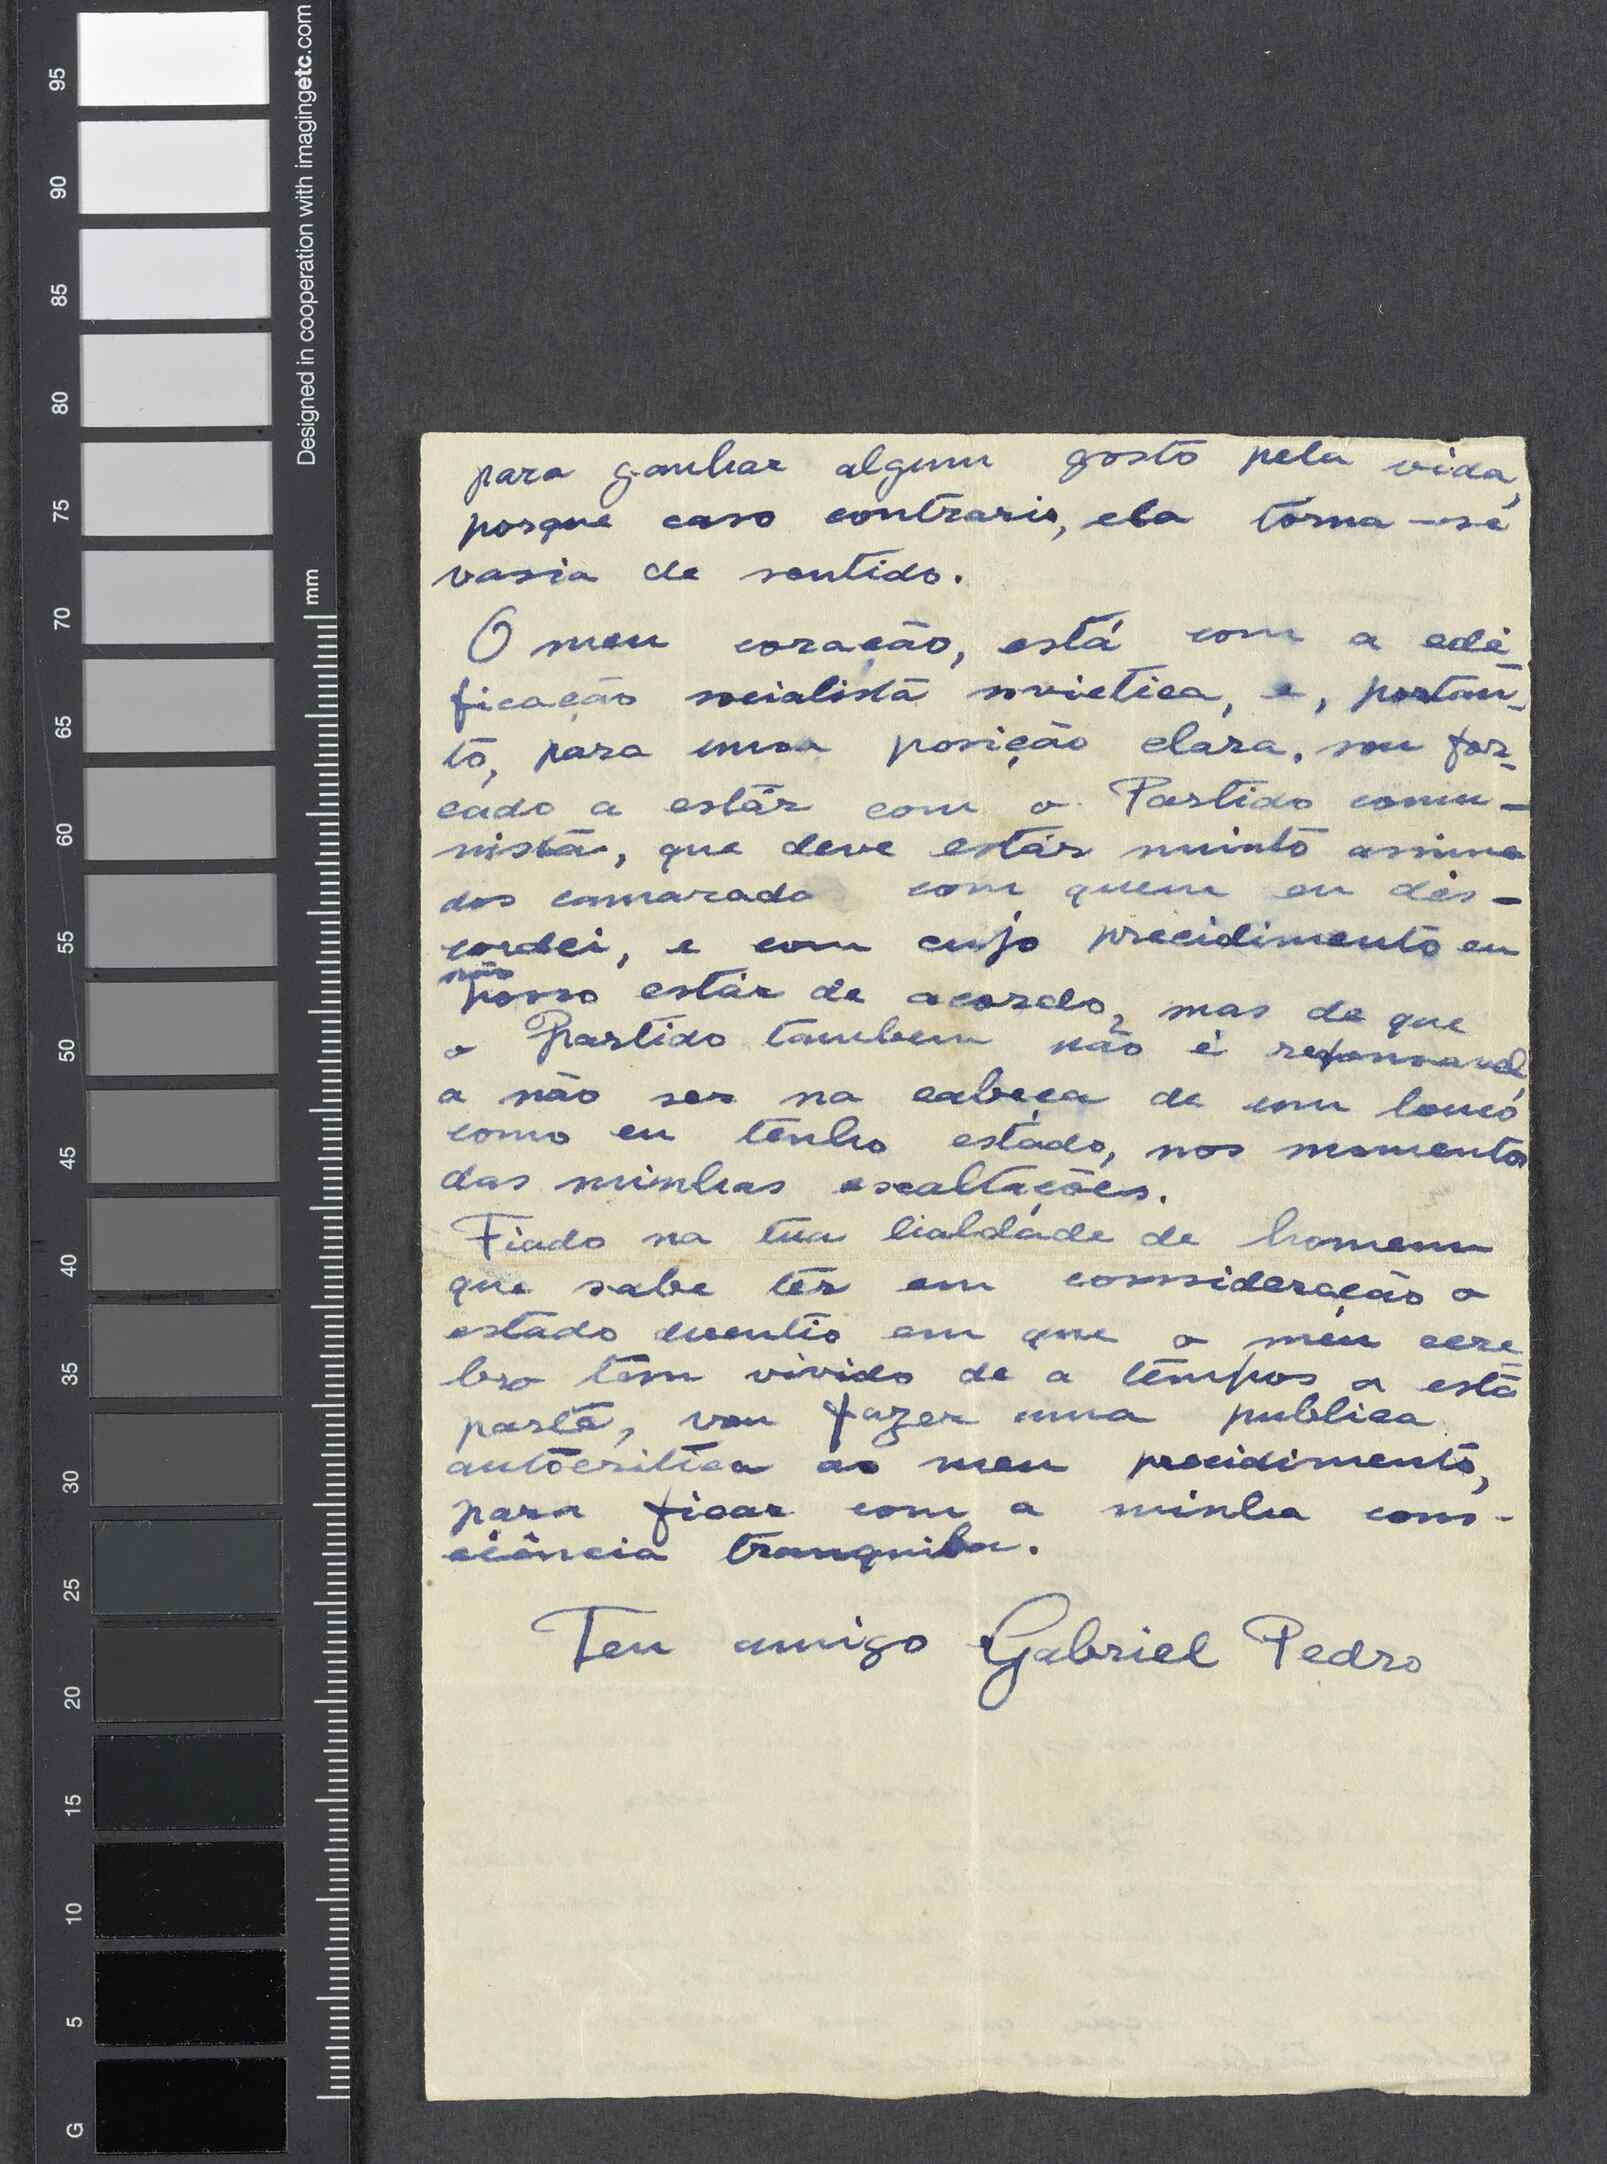 para ganhar algum gosto pela vida,
porque caso contrario, ela torna-se
vasia de sentido.
O meu coração, está com a edi-
ficação socialista sovietica, e, portan-
to, para uma posição clara, sou for-
çado a estár com o Partido comu-
nista, que deve estár muinto assima
dos camarada com quem eu dis-
cordei, e com cujo precidimento eu
não
posso estár de acordo, mas de que
o Partido tambem não é responsavel,
a não ser na cabeça de um louco
como eu tenho estado, nos momentos
das minhas exaltações.
Fiado na tua lialdade de homem
que sabe ter em consideração o
estado duentio em que o meu cere
bro tem vivido de a tempos a está
parte, vou fazer uma publica
autocritica ao meu precidimento,
para ficar com a minha cons-
ciência tranquila.
Teu amigo Gabriel Pedro
Designed in cooperation with imagingetc.com
mm
95
90
85
80
75
70
65
60
55
50
45
40
35
30
25
20
15
10
5
G